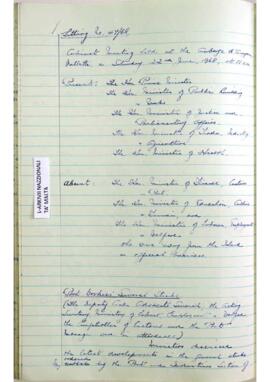 Sitting No. 47/68
Cabinet Meeting held at the Auberge d'Aragon
Valletta on Saturday 22nd June, 1968, at
Present: The Hon Prime Minister
The Hon Minister of Public Building
& Works
The Hon Minister of Justice and
Parliamentary Affairs
The Hon Minister of Trade, Industry
& Agriculture
The Hon Minister of Health
L-ARKIVJI NAZZJONALI
TA' MALTA
Absent: The Hon Minister of Finance, Customs
& Port
The Hon Minister of Education, Culture
& Tourism, and
The Hon Minister of Labour, Employment
& Welfare
who are away from the Island
on official business
Port Workers' General Strike
(The Deputy
Secretary, Ministry of Labour, Employment & Welfare
the Comptroller of Customs and the
Manager are in attendance)
Ministers discussed
the latest developments in the general strike
by the Port